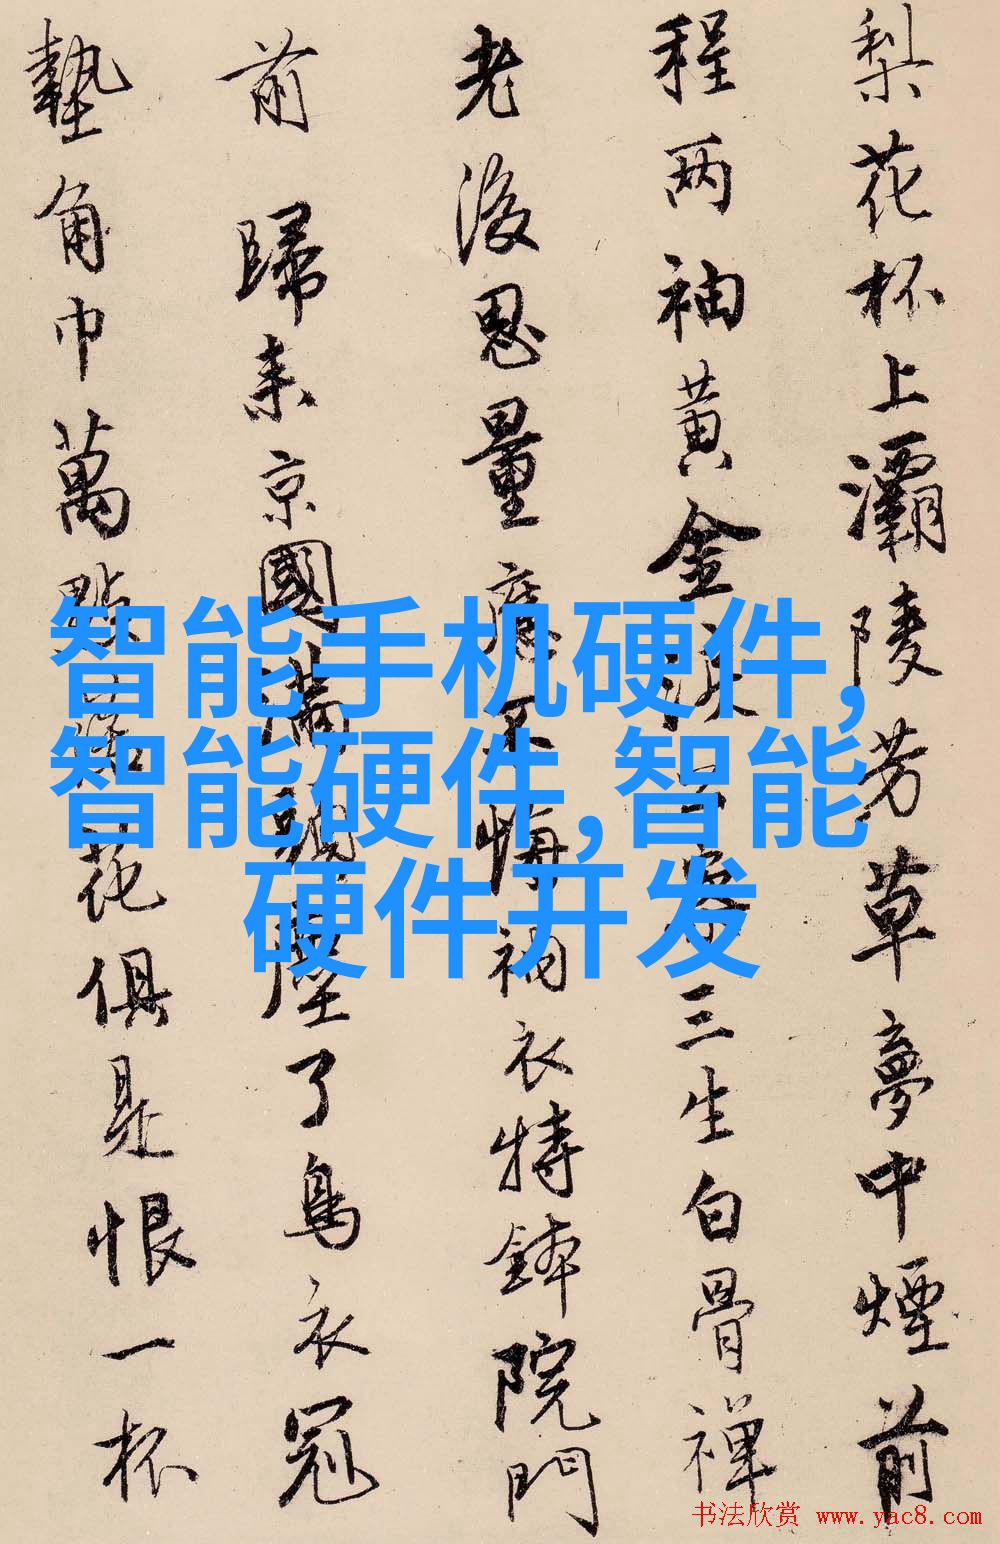 梨花杯上灞陵芳草夢中煙前
程两袖黄金淚三生白骨禅
老後思量應不悔衲衣持鉢院門
前 歸来京國满頭塵了烏衣冠
墊角巾萬點花俱是恨一杯
智能手机硬件,
智能硬件,智能
硬件开发
书法欣赏 www.yac8.com